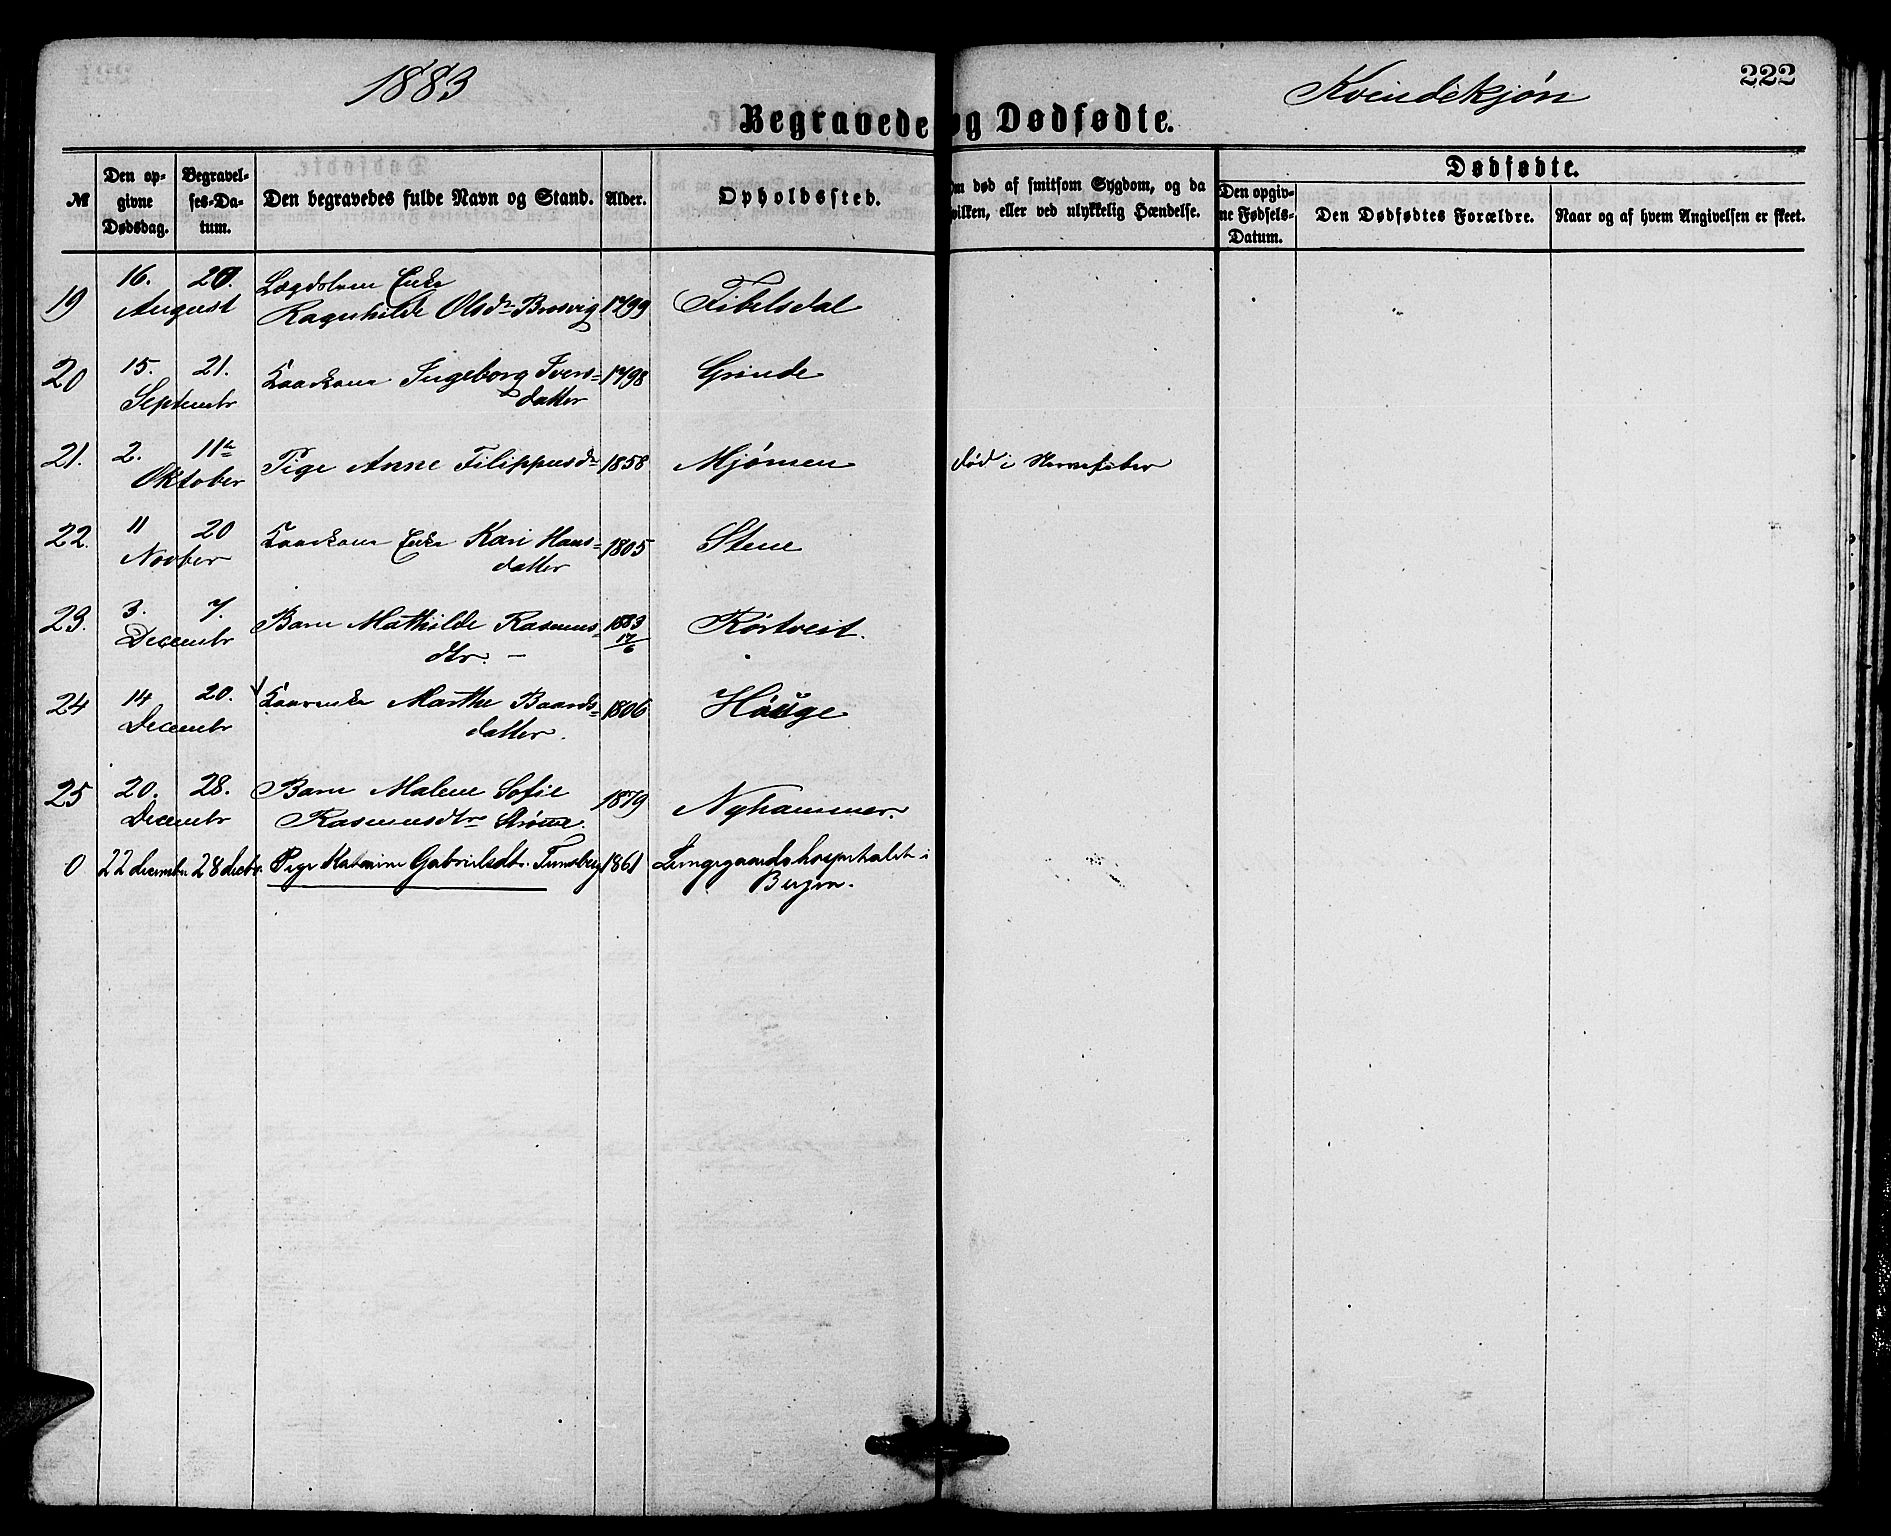 1883
Kvindekjøn
222
Begravede og Dødfødte.
№
Den op-
givne
Dødsdag.
Begravel-
ses-Da-
tum.
Den begravedes fulde Navn og Stand.
Alder.
Opholdssted.
Om død af smitsom Sygdom, og da
hvilken, eller ved ulykkelig Hændelse.
Dødfødte.
Den opgiv-
ne Fødsels-
Datum.
Den Dødfødtes Forældre.
Naar og af hvem Angivelsen er skeet.
19 16. 20. August Lægdslem Enke
Ragnhilde Olsdr Brosvig 1799 Fibelsdal
20 15. 21. Septembr Kaarkone Ingeborg Ivers=
datter 1798 Grinde
21. 2. 11te Oktober Pige Anne Filippusdr 1858 Mjømen død i Nervefeber
22. 11 20 Novber Kaarkone Enke Kari Hans=
datter 1805 Stene
23. 3. 7. Decembr Barn Mathilde Rasmus=
dtr. — 1883 17/6 Rørtveit.
24 14 20. Decembr Kaarenke Marthe Baards=
datter. 1806 Høuge
25 20. 28. Decembr Barn Malene Sofie
Rasmusdtr Strømme. 1879 Nyhammer.
0 22 decembr. 28 decbr. Pige Katrine Gabrielsdtr. Tunsberg 1861 Lungegaardshospitalet i
Bergen.